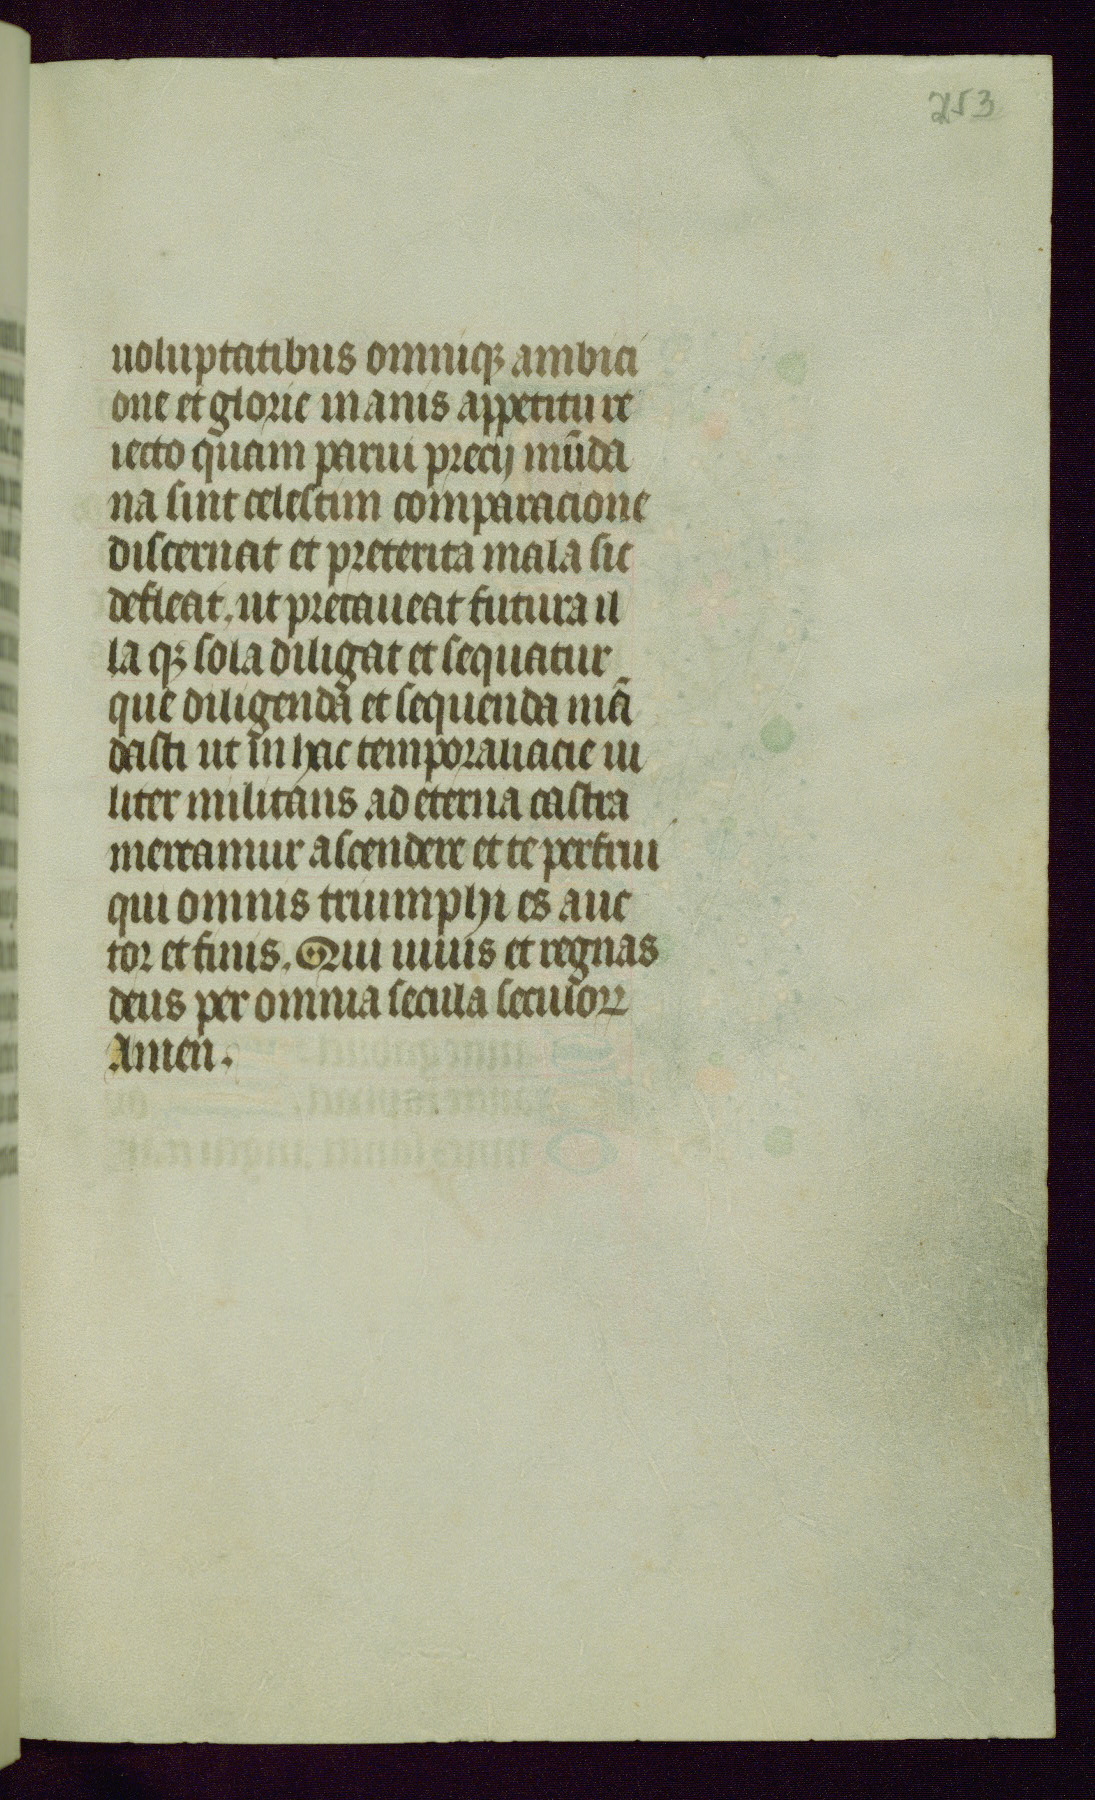 253
uoluptatibus omniqꝫ ambici
one et glorie inanis appetitu re
iecto quam parui precij mūda
na sint celestim comparacione
discernat et preterita mala sic
defleat, ut precaueat futura il
la qꝫ sola diligat et sequatur
que diligenda et sequenda mā
dasti ut in hac temporali acie ui
liter militans ad eterna castra
mereamur ascendere et te perfrui
qui omnis triumphi es auc
tor et finis. Qui uiuis et regnas
deus per omnia secula seculoꝝ
Amen.